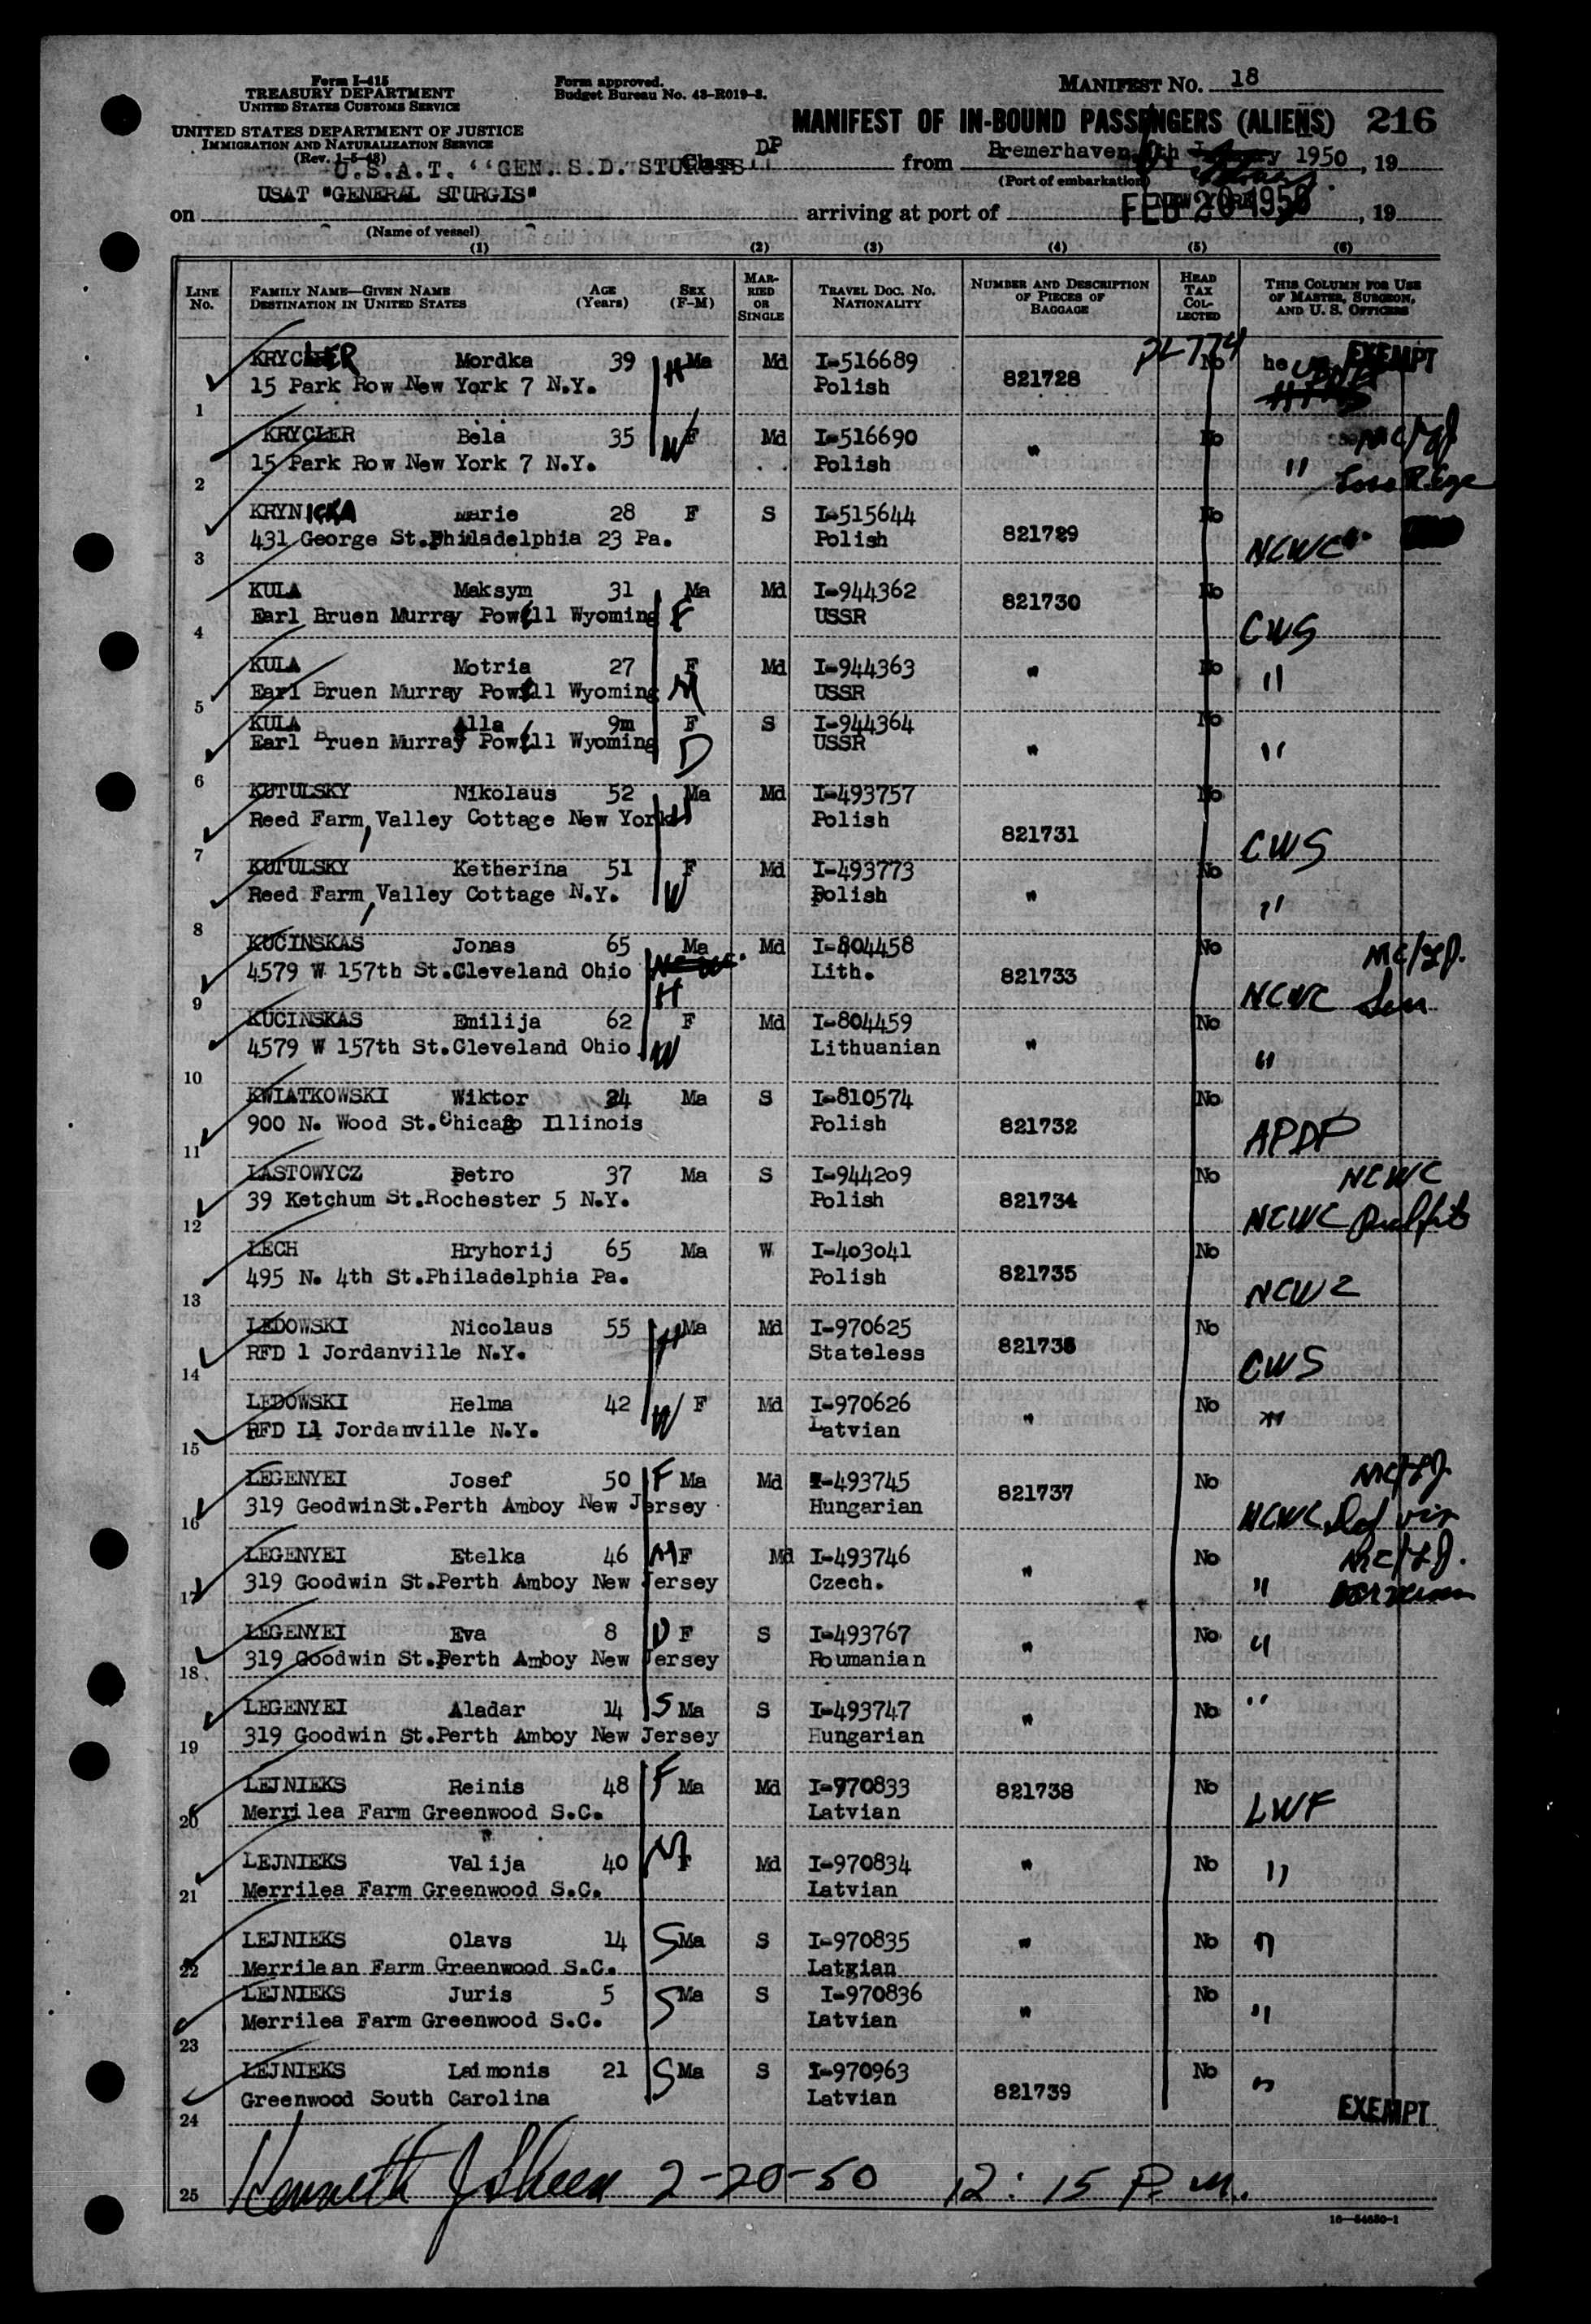 Form I-415
TREASURY DEPARTMENT
UNITED STATES CUSTOMS SERVICE
UNITED STATES DEPARTMENT OF JUSTICE
IMMIGRATION AND NATURALIZATION SERVICE
(Rev. 1-5-48)
Form approved.
Budget Bureau No. 43-R019-3.
MANIFEST NO. 18
MANIFEST OF IN-BOUND PASSENGERS (ALIENS) 216
U.S.A.T. "GEN. S.D. STURGIS" Class DP from Bremerhaven 1950, 19
(Port of embarkation)
USAT "GENERAL STURGIS"
on arriving at port of NEW YORK FEB 20 1950, 19
(Name of vessel)
(1) (2) (3) (4) (5) (6)
LINE No. FAMILY NAME—GIVEN NAME DESTINATION IN UNITED STATES AGE (Years) SEX (F-M) MARRIED OR SINGLE TRAVEL DOC. NO. NATIONALITY NUMBER AND DESCRIPTION OF PIECES OF BAGGAGE HEAD TAX COLLECTED THIS COLUMN FOR USE OF MASTER, SURGEON, AND U. S. OFFICERS
PL 774 EXEMPT
KRYCLER Mordka 39 H Ma Md I-516689 821728 No he
1 15 Park Row New York 7 N.Y. Polish
KRYCLER Bela 35 W F Md I-516690 " No
2 15 Park Row New York 7 N.Y. Polish " Loss R. Eye
KRYNICKA Marie 28 F S I-515644 821729 No
3 431 George St.Philadelphia 23 Pa. Polish NCWC
KULA Maksym 31 Ma Md I-944362 821730 No
4 Earl Bruen Murray Powell Wyoming F USSR CWS
KULA Motria 27 F Md I-944363 " No
5 Earl Bruen Murray Powell Wyoming M USSR "
KULA Alla 9m F S I-944364 " No
6 Earl Bruen Murray Powell Wyoming D USSR "
KUTULSKY Nikolaus 52 Ma Md I-493757 821731 No
7 Reed Farm, Valley Cottage New York H Polish CWS
KUTULSKY Ketherina 51 F Md I-493773 " No
8 Reed Farm, Valley Cottage N.Y. W Polish "
KUCINSKAS Jonas 65 Ma Md I-804458 821733 No
9 4579 W 157th St.Cleveland Ohio H Lith. NCWC Sen
KUCINSKAS Emilija 62 F Md I-804459 " No
10 4579 W 157th St.Cleveland Ohio W Lithuanian "
KWIATKOWSKI Wiktor 24 Ma S I-810574 821732 No
11 900 N. Wood St.Chicago Illinois Polish APDP
LASTOWYCZ Petro 37 Ma S I-944209 821734 No NCWC
12 39 Ketchum St.Rochester 5 N.Y. Polish NCWC
LECH Hryhorij 65 Ma W I-403041 821735 No
13 495 N. 4th St.Philadelphia Pa. Polish NCWC
LEDOWSKI Nicolaus 55 H Ma Md I-970625 821736 No
14 RFD 1 Jordanville N.Y. Stateless CWS
LEDOWSKI Helma 42 W F Md I-970626 " No
15 RFD 1 Jordanville N.Y. Latvian "
LEGENYEI Josef 50 F Ma Md I-493745 821737 No
16 319 GeodwinSt.Perth Amboy New Jersey Hungarian NCWC Def vis
LEGENYEI Etelka 46 M F Md I-493746 " No
17 319 Goodwin St.Perth Amboy New Jersey Czech. "
LEGENYEI Eva 8 D F S I-493767 " No "
18 319 Goodwin St.Perth Amboy New Jersey Roumanian
LEGENYEI Aladar 14 S Ma S I-493747 " No "
19 319 Goodwin St.Perth Amboy New Jersey Hungarian
LEJNIEKS Reinis 48 F Ma Md I-970833 821738 No
20 Merrilea Farm Greenwood S.C. Latvian LWF
LEJNIEKS Valija 40 M F Md I-970834 " No "
21 Merrilea Farm Greenwood S.C. Latvian
LEJNIEKS Olavs 14 S Ma S I-970835 " No "
22 Merrilean Farm Greenwood S.C. Latgian
LEJNIEKS Juris 5 S Ma S I-970836 " No "
23 Merrilea Farm Greenwood S.C. Latvian
LEJNIEKS Laimonis 21 S Ma S I-970963 821739 No "
24 Greenwood South Carolina Latvian EXEMPT
25 Kenneth J Sheen 2-20-50 12:15 P.M.
16—54650-1